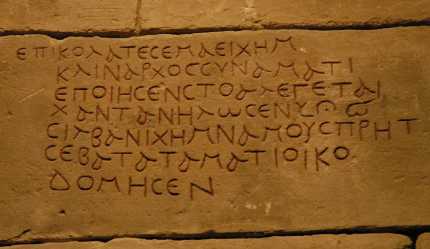 ΕΠΙΚΟΛΑΤΕϹΕΜΑΕΙΧΗΜ
ΚΑΙΝΑΡΧΟϹϹΥΝΑΜΑΤΙ
ΕΠΟΙΗϹΕΝϹΤΟΑΛΕΓΕΤΑΙ
ΧΑΝΤΑΝΗΛΩϹΕΝ
ϹΙΛΒΑΝΙΧΗΜΝΑΜΟΥϹΠΡΗΤ
ϹΕΒΑΤΑΤΑΜΑΤΙΟΙΚΟ
ΔΟΜΗϹΕΝ